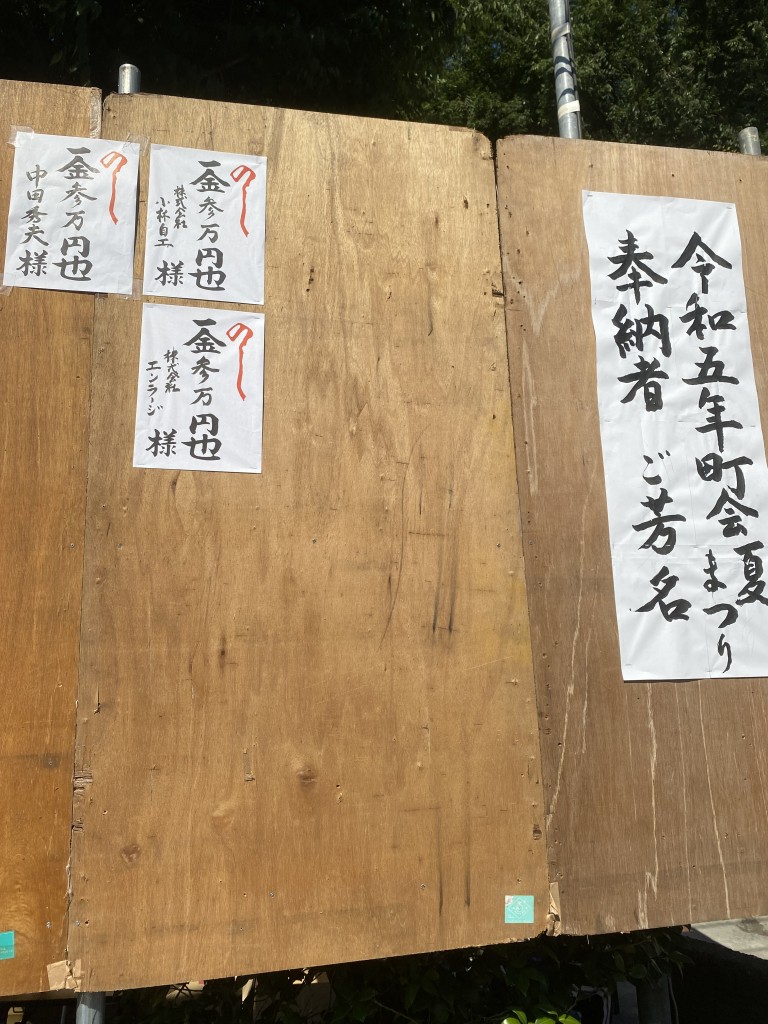 令和五年町会夏まつり
奉納者ご芳名
のし
一金参万円也
株式会社
小林自工
様
のし
一金参万円也
株式会社
エンラージ
様
のし
一金参万円也
中田秀夫様